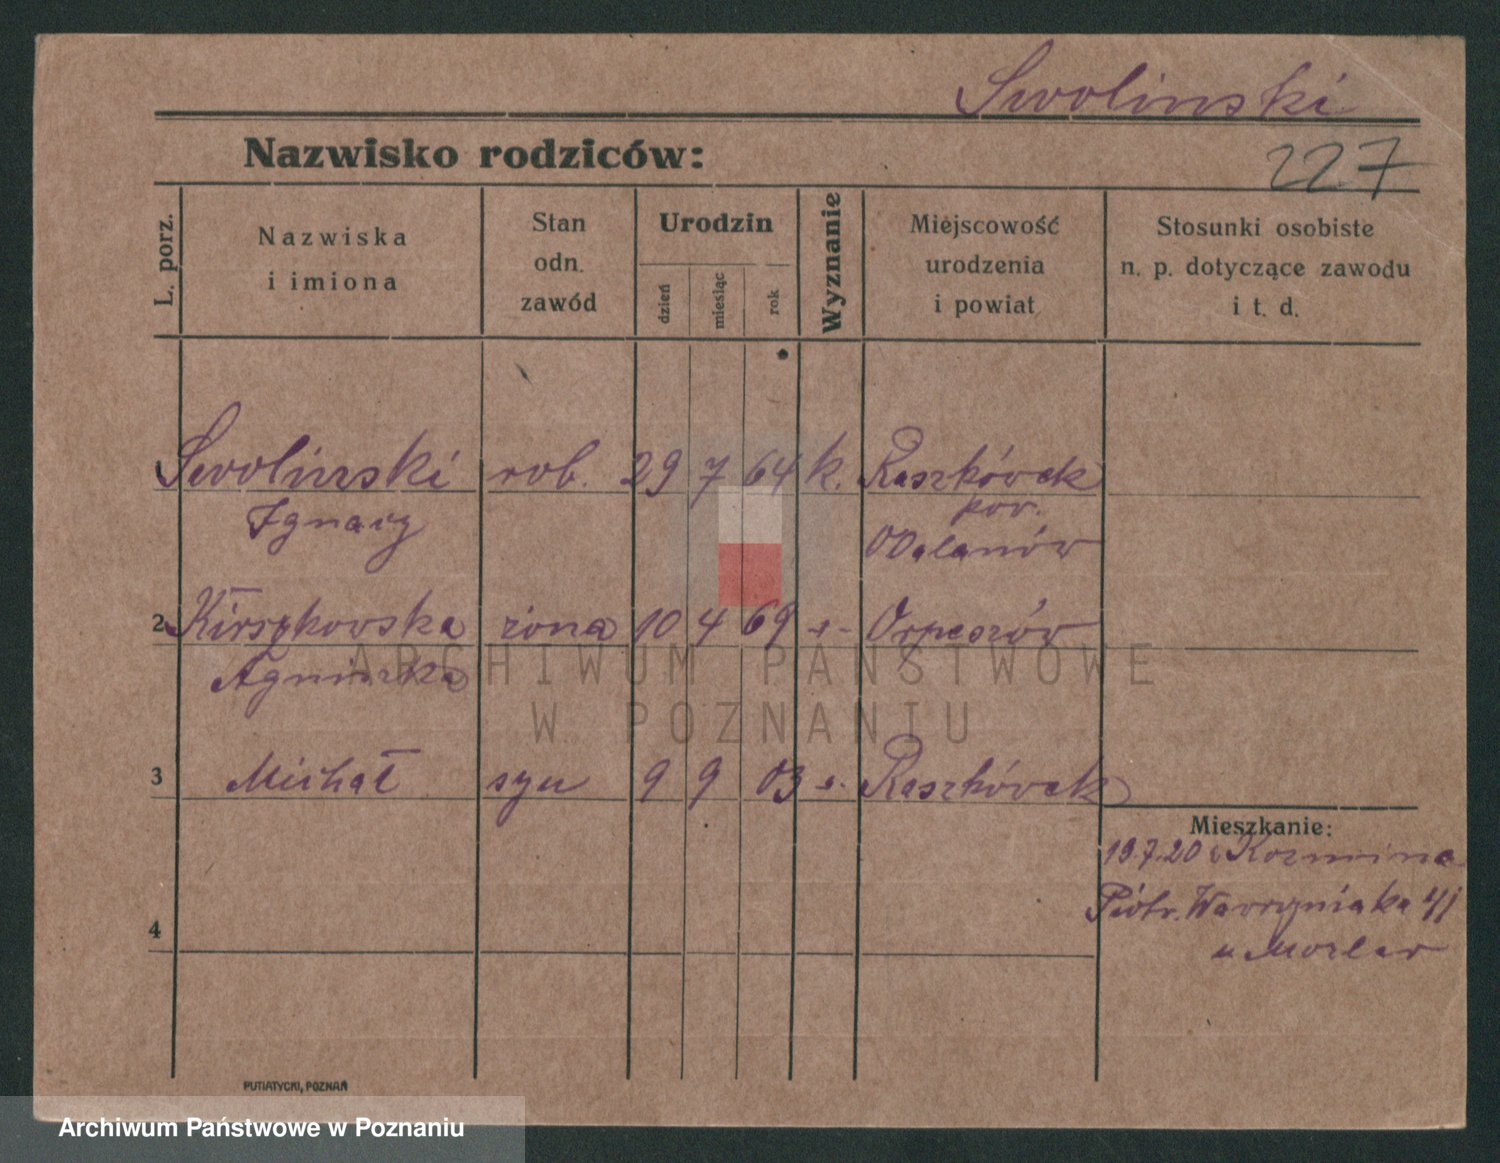 Swolinski
Nazwisko rodziców:
227
L. porz.
Nazwiska
i imiona
Stan
odn.
zawód
Urodzin
dzień
miesiąc
rok
Wyznanie
Miejscowość
urodzenia
i powiat
Stosunki osobiste
n. p. dotyczące zawodu
i t. d.
Swolinski rob. 29 7 64 k. Raszkówek
Ignacy pow.
Odalanów
2 Kirszkowska żona 10 4 69 Orpiszów
Agnieszka
3 Michał syn 9 9 03 Raszkówek
Mieszkanie:
19.7.20 z Kozmina
Piotr. Wawrzyniaka
4
u Mozler
ARCHIWUM PAŃSTWOWE
W POZNANIU
PUTIATYCKI, POZNAŃ
Archiwum Państwowe w Poznaniu